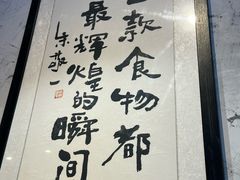 款食物都
最辉煌的瞬间
朱敬一